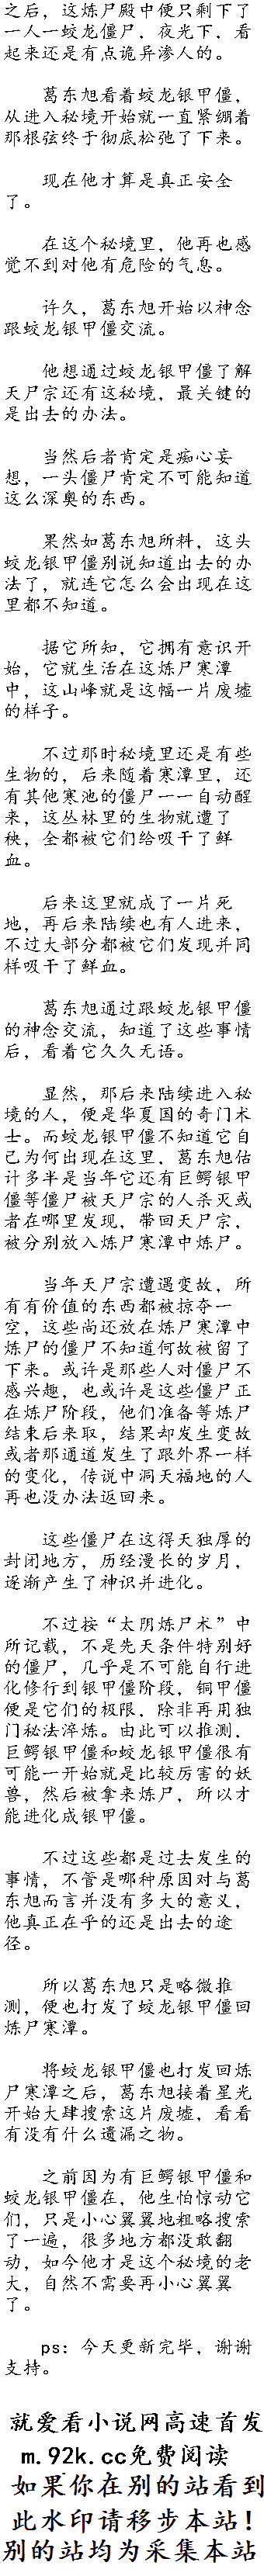 之后，这炼尸殿中便只剩下了
一人一蛟龙僵尸，夜光下，看
起来还是有点诡异渗人的。
葛东旭看着蛟龙银甲僵，
从进入秘境开始就一直紧绷着
那根弦终于彻底松弛了下来。
现在他才算是真正安全
了。
在这个秘境里，他再也感
觉不到对他有危险的气息。
许久，葛东旭开始以神念
跟蛟龙银甲僵交流。
他想通过蛟龙银甲僵了解
天尸宗还有这秘境，最关键的
是出去的办法。
当然后者肯定是痴心妄
想，一头僵尸肯定不可能知道
这么深奥的东西。
果然如葛东旭所料，这头
蛟龙银甲僵别说知道出去的办
法了，就连它怎么会出现在这
里都不知道。
据它所知，它拥有意识开
始，它就生活在这炼尸寒潭
中，这山峰就是这幅一片废墟
的样子。
不过那时秘境里还是有些
生物的，后来随着寒潭里，还
有其他寒池的僵尸一一自动醒
来，这丛林里的生物就遭了
秧，全都被它们给吸干了鲜
血。
后来这里就成了一片死
地，再后来陆续也有人进来，
不过大部分都被它们发现并同
样吸干了鲜血。
葛东旭通过跟蛟龙银甲僵
的神念交流，知道了这些事情
后，看着它久久无语。
显然，那后来陆续进入秘
境的人，便是华夏国的奇门术
士。而蛟龙银甲僵不知道它自
己为何出现在这里，葛东旭估
计多半是当年它还有巨鳄银甲
僵等僵尸被天尸宗的人杀灭或
者在哪里发现，带回天尸宗，
被分别放入炼尸寒潭中炼尸。
当年天尸宗遭遇变故，所
有有价值的东西都被掠夺一
空，这些尚还放在炼尸寒潭中
炼尸的僵尸不知道何故被留了
下来。或许是那些人对僵尸不
感兴趣，也或许是这些僵尸正
在炼尸阶段，他们准备等炼尸
结束后来取，结果却发生变故
或者那通道发生了跟外界一样
的变化，传说中洞天福地的人
再也没办法返回来。
这些僵尸在这得天独厚的
封闭地方，历经漫长的岁月，
逐渐产生了神识并进化。
不过按“太阴炼尸术”中
所记载，不是先天条件特别好
的僵尸，几乎是不可能自行进
化修行到银甲僵阶段，铜甲僵
便是它们的极限，除非再用独
门秘法淬炼。由此可以推测，
巨鳄银甲僵和蛟龙银甲僵很有
可能一开始就是比较厉害的妖
兽，然后被拿来炼尸，所以才
能进化成银甲僵。
不过这些都是过去发生的
事情，不管是哪种原因对与葛
东旭而言并没有多大的意义，
他真正在乎的还是出去的途
径。
所以葛东旭只是略微推
测，便也打发了蛟龙银甲僵回
炼尸寒潭。
将蛟龙银甲僵也打发回炼
尸寒潭之后，葛东旭接着星光
开始大肆搜索这片废墟，看看
有没有什么遗漏之物。
之前因为有巨鳄银甲僵和
蛟龙银甲僵在，他生怕惊动它
们，只是小心翼翼地粗略搜索
了一遍，很多地方都没敢翻
动，如今他才是这个秘境的老
大，自然不需要再小心翼翼
了。
ps：今天更新完毕，谢谢
支持。
就爱看小说网高速首发
m.92k.cc免费阅读
如果你在别的站看到
此水印请移步本站！
别的站均为采集本站